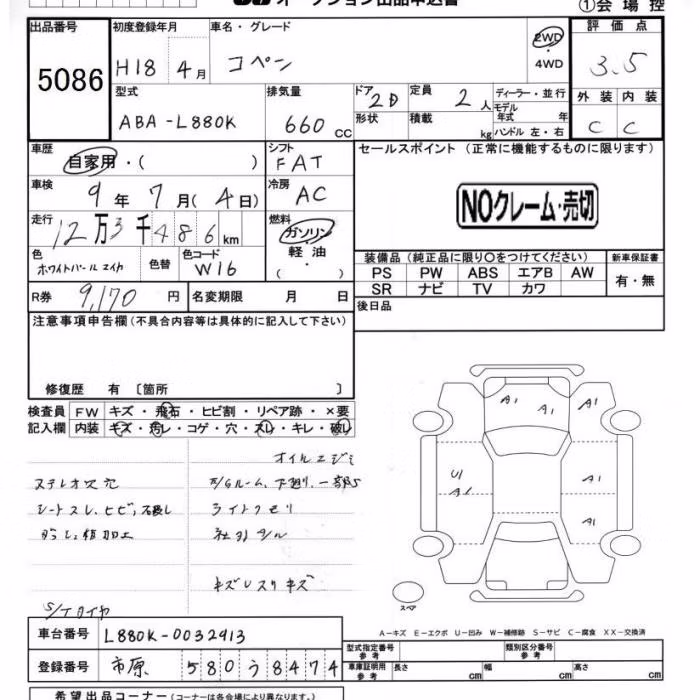 オークション出品申込書
①会場控
出品番号
5086
初度登録年月
H18 4月
車名・グレード
コペン
2WD
・
4WD
評価点
3.5
型式
ABA-L880K
排気量
660 CC
ドア
2D
形状
定員
2人
積載
kg
ディーラー・並行
モデル
年式 年
ハンドル 左・右
外装 内装
C C
車歴
自家用・( )
シフト
FAT
セールスポイント (正常に機能するものに限ります)
車検
9年7月(4日)
冷房
AC
NOクレーム・売切
走行
12万3千486km
燃料
ガソリン
軽油
( )
色
ホワイトパールマイカ
色替
色コード
W16
装備品 (純正品に限り○をつけてください)
新車保証書
PS PW ABS エアB AW
SR ナビ TV カワ
有・無
R券 9,170円
名変期限 月 日
後日品
注意事項申告欄 (不具合内容等は具体的に記入して下さい)
修復歴 有 〔箇所 〕
検査員 FW キズ・飛石・ヒビ割・リペア跡・×要
記入欄 内装 キズ・汚レ・コゲ・穴・スレ・キレ・破レ
A1 A1 A1
U1
A1
A1
A1
オイルニジミ
ステレオ欠穴
シートスレ、ヒビ、
ライトクモリ
キズ
S/Tタイヤ
スペア
A-キズ E-エクボ U-凹み W-補修跡 S-サビ C-腐食 XX-交換済
車台番号 L880K-0032913
登録番号 市原 580う8474
型式指定番号
参考
類別区分番号
参考
車庫証明用
参考
長さ cm
幅 cm
高さ cm
希望出品コーナー (コーナーは各会場により異なります。)